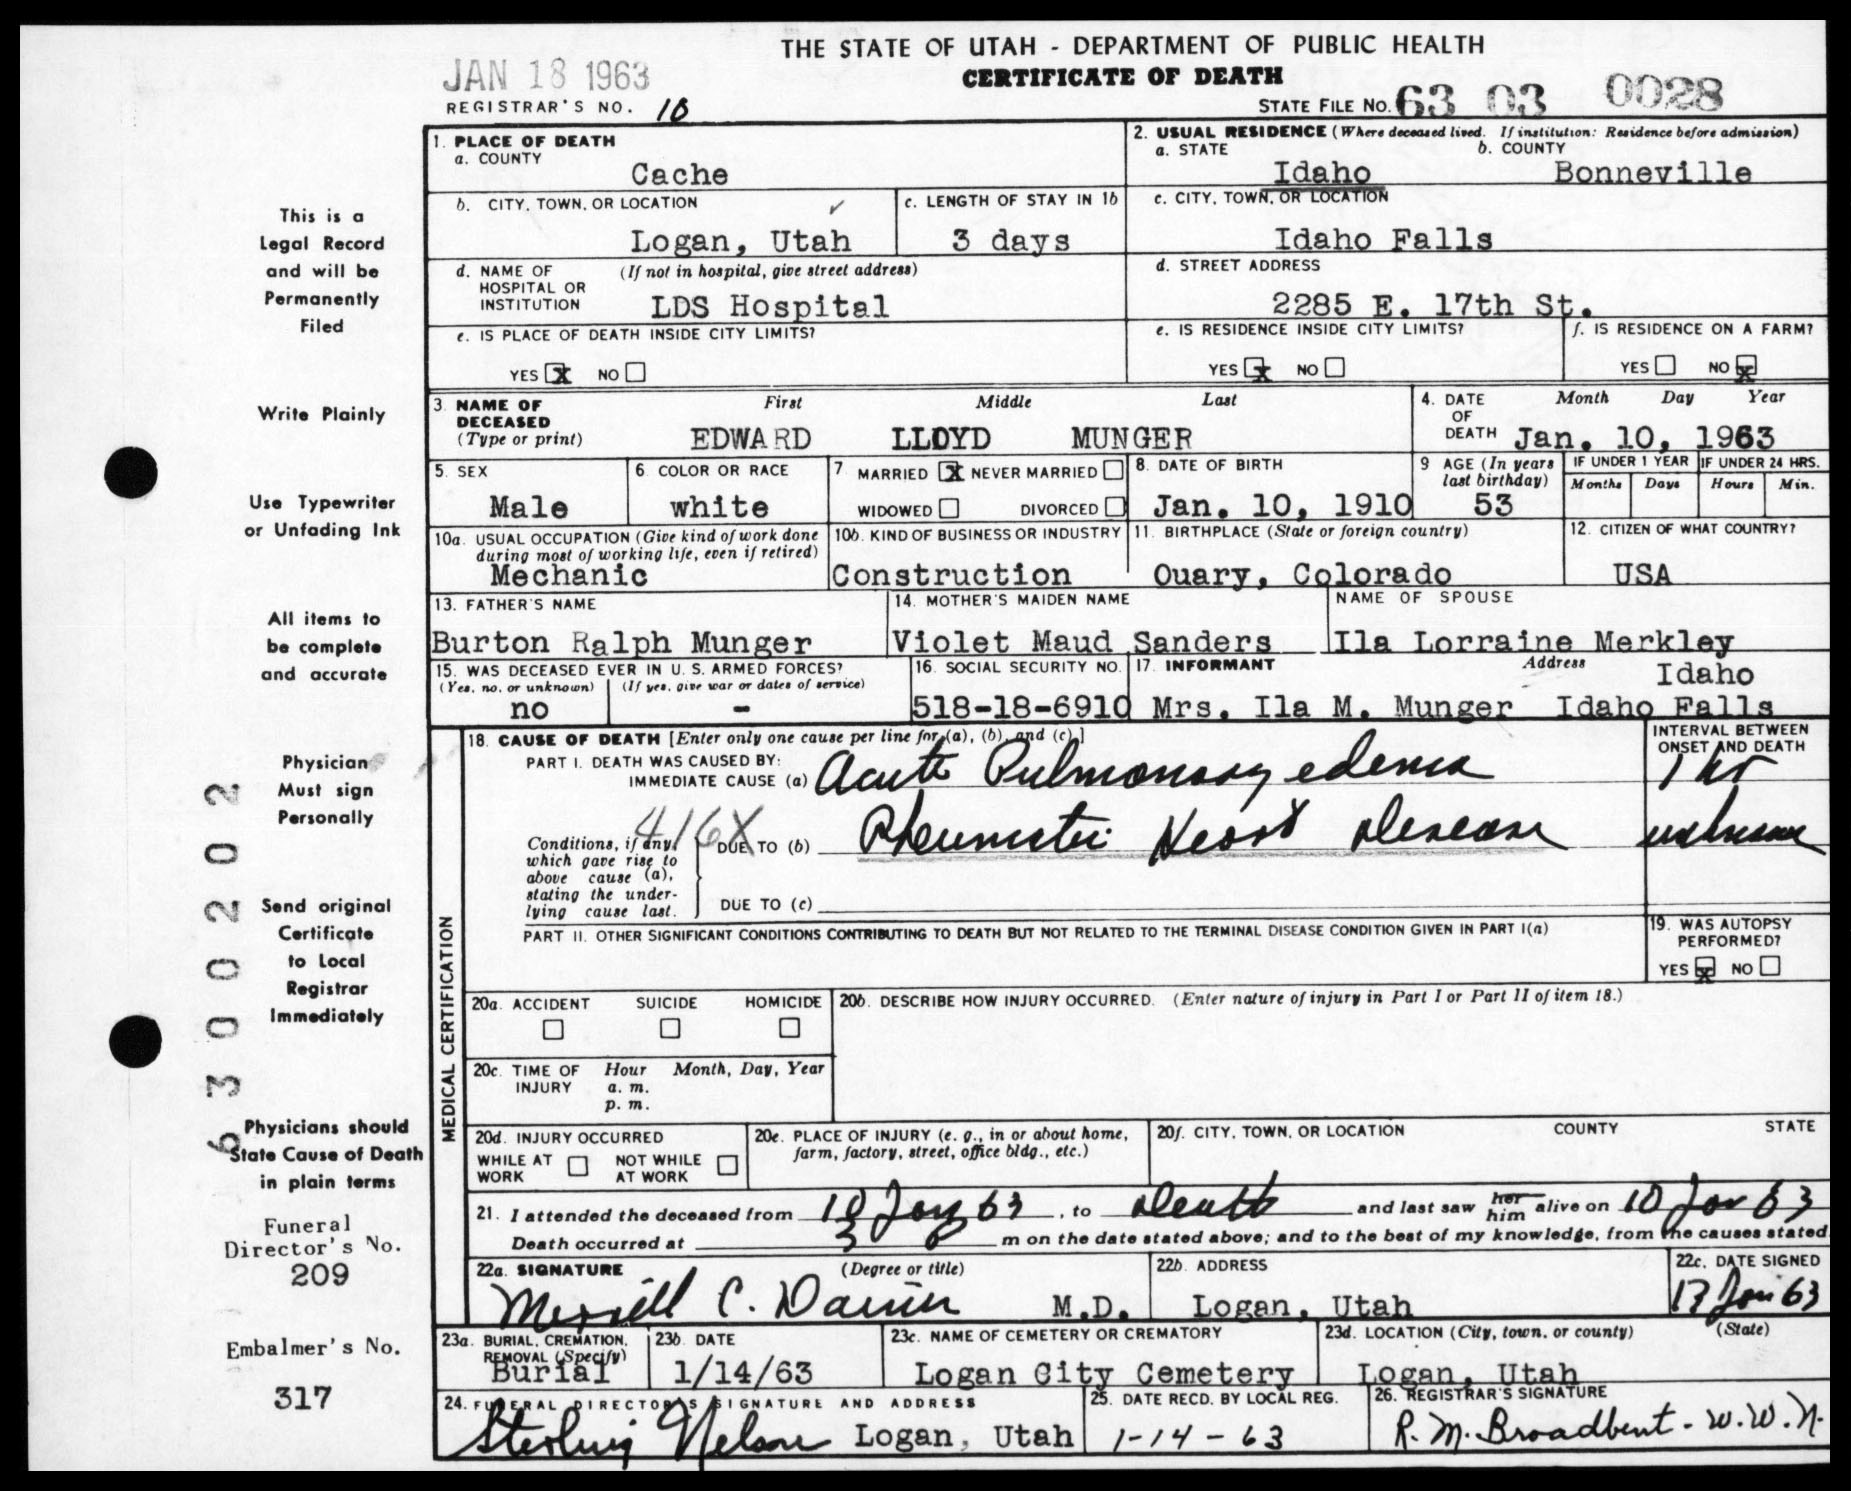 THE STATE OF UTAH - DEPARTMENT OF PUBLIC HEALTH
JAN 18 1963
CERTIFICATE OF DEATH
REGISTRAR'S NO. 10
STATE FILE NO. 63 03 0028
1. PLACE OF DEATH
a. COUNTY
Cache
2. USUAL RESIDENCE (Where deceased lived. If institution: Residence before admission)
a. STATE
Idaho
b. COUNTY
Bonneville
b. CITY, TOWN, OR LOCATION
Logan, Utah
c. LENGTH OF STAY IN 1b
3 days
c. CITY, TOWN, OR LOCATION
Idaho Falls
d. NAME OF HOSPITAL OR INSTITUTION
(If not in hospital, give street address)
LDS Hospital
d. STREET ADDRESS
2285 E. 17th St.
e. IS PLACE OF DEATH INSIDE CITY LIMITS?
YES X NO
e. IS RESIDENCE INSIDE CITY LIMITS?
YES X NO
f. IS RESIDENCE ON A FARM?
YES NO X
3. NAME OF DECEASED
(Type or print)
First Middle Last
EDWARD LLOYD MUNGER
4. DATE OF DEATH
Month Day Year
Jan. 10, 1963
5. SEX
Male
6. COLOR OR RACE
white
7. MARRIED X NEVER MARRIED
WIDOWED DIVORCED
8. DATE OF BIRTH
Jan. 10, 1910
9 AGE (In years last birthday)
53
IF UNDER 1 YEAR
Months Days
IF UNDER 24 HRS.
Hours Min.
10a. USUAL OCCUPATION (Give kind of work done during most of working life, even if retired)
Mechanic
10b. KIND OF BUSINESS OR INDUSTRY
Construction
11. BIRTHPLACE (State or foreign country)
Ouary, Colorado
12. CITIZEN OF WHAT COUNTRY?
USA
13. FATHER'S NAME
Burton Ralph Munger
14. MOTHER'S MAIDEN NAME
Violet Maud Sanders
NAME OF SPOUSE
Ila Lorraine Merkley
15. WAS DECEASED EVER IN U. S. ARMED FORCES?
(Yes, no, or unknown) (If yes, give war or dates of service)
no -
16. SOCIAL SECURITY NO.
518-18-6910
17. INFORMANT Address
Idaho
Mrs. Ila M. Munger Idaho Falls
MEDICAL CERTIFICATION
18. CAUSE OF DEATH [Enter only one cause per line for (a), (b), and (c).]
PART I. DEATH WAS CAUSED BY:
IMMEDIATE CAUSE (a) Acute Pulmonary edema
INTERVAL BETWEEN ONSET AND DEATH
1 hr
416X
Conditions, if any, which gave rise to above cause (a), stating the underlying cause last.
DUE TO (b) Rheumatic Heart Disease
unknown
DUE TO (c)
PART II. OTHER SIGNIFICANT CONDITIONS CONTRIBUTING TO DEATH BUT NOT RELATED TO THE TERMINAL DISEASE CONDITION GIVEN IN PART I(a)
19. WAS AUTOPSY PERFORMED?
YES X NO
20a. ACCIDENT SUICIDE HOMICIDE
20b. DESCRIBE HOW INJURY OCCURRED. (Enter nature of injury in Part I or Part II of item 18.)
20c. TIME OF INJURY
Hour Month, Day, Year
a. m.
p. m.
20d. INJURY OCCURRED
WHILE AT WORK NOT WHILE AT WORK
20e. PLACE OF INJURY (e. g., in or about home, farm, factory, street, office bldg., etc.)
20f. CITY, TOWN, OR LOCATION COUNTY STATE
21. I attended the deceased from 10 Jan 63, to Death and last saw her him alive on 10 Jan 63
Death occurred at 3 m on the date stated above; and to the best of my knowledge, from the causes stated
22a. SIGNATURE (Degree or title)
Merrill C. Daines M.D.
22b. ADDRESS
Logan, Utah
22c. DATE SIGNED
13 Jan 63
23a. BURIAL, CREMATION, REMOVAL (Specify)
Burial
23b. DATE
1/14/63
23c. NAME OF CEMETERY OR CREMATORY
Logan City Cemetery
23d. LOCATION (City, town, or county) (State)
Logan, Utah
24. FUNERAL DIRECTOR'S SIGNATURE AND ADDRESS
Sterling Nelson Logan, Utah
25. DATE RECD. BY LOCAL REG.
1-14-63
26. REGISTRAR'S SIGNATURE
R. M. Broadbent - W. W. N.
This is a
Legal Record
and will be
Permanently
Filed
Write Plainly
Use Typewriter
or Unfading Ink
All items to
be complete
and accurate
Physician
Must sign
Personally
Send original
Certificate
to Local
Registrar
Immediately
Physicians should
State Cause of Death
in plain terms
Funeral
Director's No.
209
Embalmer's No.
317
6300202